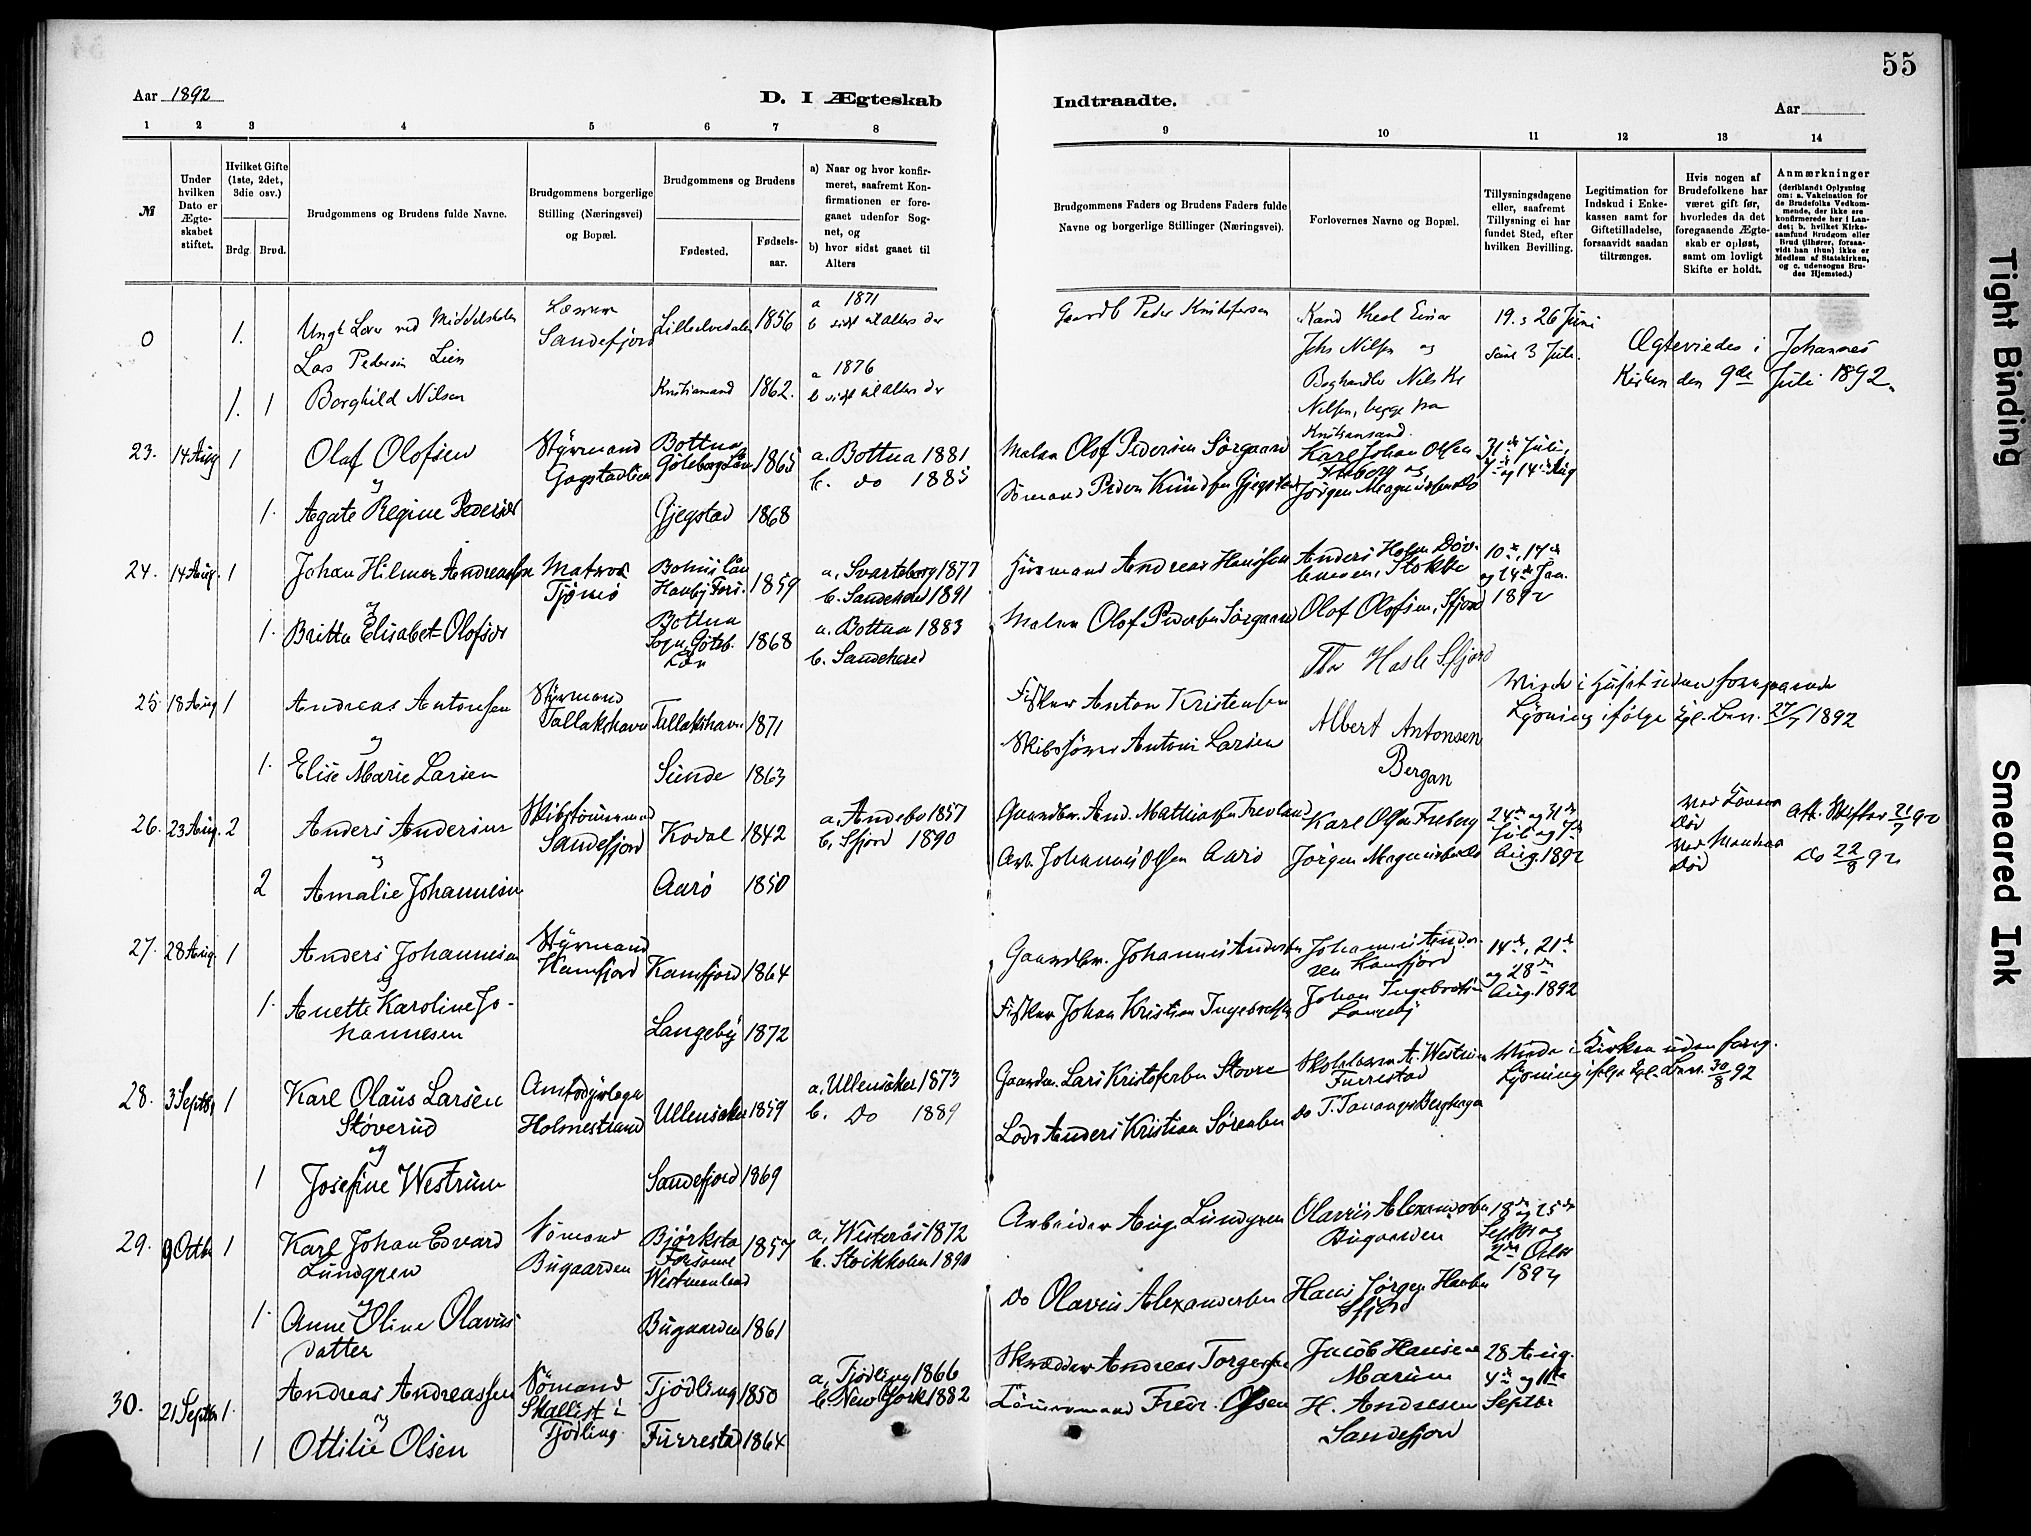 55
Aar 1892
D. I Ægteskab
Indtraadte.
Aar
1 2 3 4 5 6 7 8 9 10 11 12 13 14
№
Under hvilken Dato er Ægteskabet stiftet.
Hvilket Gifte (1ste, 2det, 3die osv.)
Brdg. Brud.
Brudgommens og Brudens fulde Navne.
Brudgommens borgerlige Stilling (Næringsvei) og Bopæl.
Brudgommens og Brudens
Fødested.
Fødselsaar.
a) Naar og hvor konfirmeret, saafremt Konfirmationen er foregaaet udenfor Sognet, og
b) hvor sidst gaaet til Alters
Brudgommens Faders og Brudens Faders fulde Navne og borgerlige Stillinger (Næringsvei).
Forlovernes Navne og Bopæl.
Tillysningsdagene eller, saafremt Tillysning ei har fundet Sted, efter hvilken Bevilling.
Legitimation for Indskud i Enkekassen samt for Giftetilladelse, forsaavidt saadan tiltrænges.
Hvis nogen af Brudefolkene har været gift før, hvorledes da det foregaaende Ægteskab er opløst, samt om lovligt Skifte er holdt.
Anmærkninger
(deriblandt Oplysning om: a. Vakcination for de Brudefolks Vedkommende, der ikke ere konfirmerede her i Landet; b. hvilket Kirkesamfund Brudgom eller Brud tilhører, forsaavidt han (hun) ikke er Medlem af Statskirken, og c. udensogns Brudes Hjemsted.)
0 1. Lærer ved Middelskolen
Lars Pedersen Lien
Sandefjord
Lilleelvedalen 1856
a 1871
b sidst til alters der
Gaardb Peder Kristofersen
Kand theol Einar
Johs Nilsen og
Boghandler Nils Kr
Nilsen, begge fra
Kristiansand.
19. & 26 Juni
samt 3 Juli.
Ægteviedes i Johannes
Kirken den 9de Juli 1892.
1. 1 Borghild Nilsen
Kristiansand 1862.
a 1876
b sidst til alters der
23. 14 Aug 1 Olaf Olofsen
Styrmand
Gogstadlien
Bottna
Göteborgs Län 1865
a. Bottna 1881
b. do 1885
Olof Pedersen Sørgaard
Karl Johan Olsen
Freberg og
Jørgen Magnussen do
31te Juli,
7de og 14de Aug
og
1. Agate Regine Pedersen
Gjegstad 1868
Sømand Peder Knudsen Gjegstad
24. 14 Aug. 1 Johan Hilmer Andreassen
Matros
Tjømø
Bohus Län
1859
a, Svarteborg 1877
b. Sandeherred 1891
Husmand Andreas Hansen
Anders Holm Døv-
Stokke
10de, 17de
og 24de Jan.
1892
og
1. Britta Elisabet Olofsdr
Bottna
Sogn, Göteb.
Län 1868
a. Bottna 1883
b. Sandehered
Olof Pedersen Sørgaard
Olof Olofsen, Sfjord
Thv Hasle Sfjord
25 18 Aug 1 Andreas Antonsen
Styrmand
Tallakshavn
Tallakshavn 1871
Fisker Anton Kristensen
Albert Antonsen
Bergan
Viede i Huset uden foregaaende
Lysning ifølge Kgl. Bev. 27/7 1892
og
1. Elise Marie Larsen
Sunde 1863
Skibsfører Anton Larsen
26. 23 Aug. 2 Anders Andersen
Skibstømmermand
Sandefjord
Kodal 1842
a, Andebo 1857
b, Sfjord 1890
Gaardbr. And. Mathiassen Trevland
Karl Olsen Freberg
24de og 31te
Juli og 7de
Aug. 1892
ved Konens
Død
ved Mandens
Død
Att. Skifter 21/7 92
Do 22/8 92
og
2 Amalie Johannesen
Aarø 1850
Arb. Johannes Olsen Aarø
Jørgen Magnussen do
27. 28 Aug. 1 Anders Johannesen
Styrmand
Kamfjord
Kamfjord 1864
Gaardbr. Johannes Andersen
Johannes Ander-
sen Kamfjord
14de, 21de
og 28de
Aug. 1892
og
1. Anette Karoline Jo-
hannesen
Langeby 1872
Fisker Johan Kristian Ingebretsen
Johan Ingebretsen
Langeby
28. 3 Septbr 1 Karl Olaus Larsen
Støverud
Amtsdyrlæge
Holmestrand
Ullensaker 1859
a, Ullensaker 1873
b. Do 1889
Gaardbr. Lars Kristofersen Stovre
Skolelærer A. Westrum
Furrestad
Viede i Kirken uden foreg.
Lysning ifølge Kgl. Bev. 30/8 92
og
1 Josefine Westrum
Sandefjord 1869
Lods Anders Kristian Sørensen
do T. Tanangss Berghagen
29. 9 Octbr 1 Karl Johan Edvard
Lundgren
Sømand
Bugaarden
Bjørksta
Forsamml
Westmanland 1857
a, Westerås 1872
b. Stockholm 1890
Arbeider Aug. Lundgren
Olavus Alexandersen
Bugaarden
18de og 25de
Septbr og
2den Octbr
1892
og
1. Anne Oline Olavus-
datter
Bugaarden 1861
do Olavus Alexandersen
Hans Jørgen Hansen
Sfjord
30. 21 Septbr 1. Andreas Andreassen
Sømand
Skallist i
Tjødling.
Tjødling 1850
a, Tjødling 1866
b. New York 1882
Skrædder Andreas Torgersen
Jacob Hansen
Marum
28 Aug.
4de og 11te
Septbr
og
1 Ottilie Olsen
Furrestad 1864
Tømmermand Fredr. Olsen
H. Andresen
Sandefjord
Tight Binding
Smeared Ink